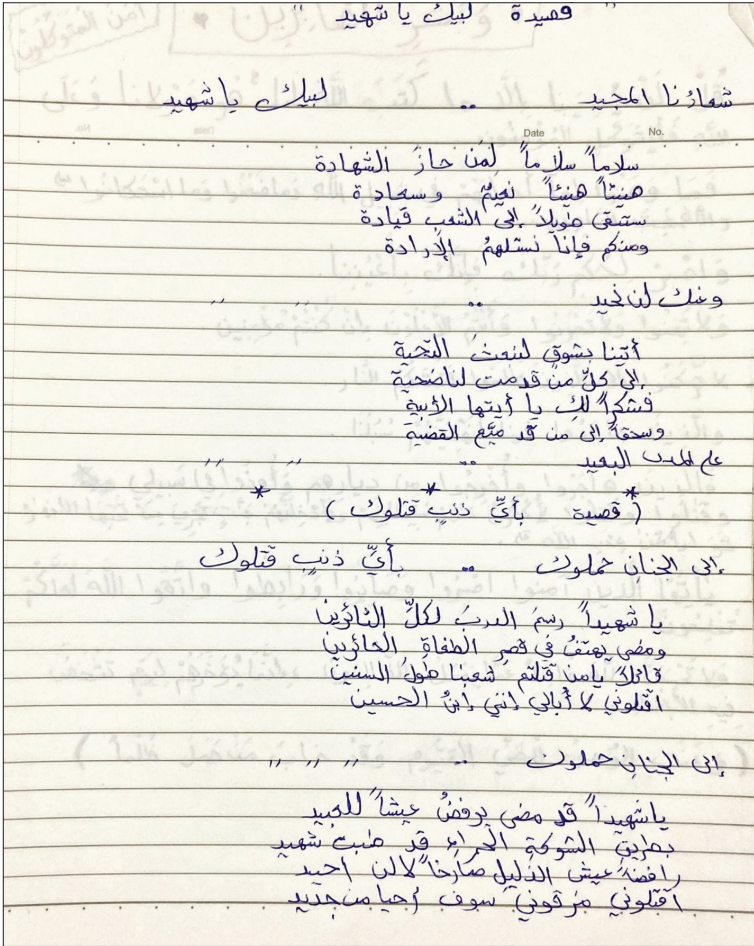 " قصيدة لبيك يا شهيد "
شعارنا المجيد .. لبيك يا شهيد
Date No.
سلاماً سلاماً لمن حاز الشهادة
هنيئاً هنيئاً نعيمٌ وسعادة
ستبقى طويلاً إلى الشعب قيادة
ومنكم فإنا نستلهمُ الإرادة
وعنك لن نحيد .. ,, ,,
أتينا بشوقٍ لنبعث التحية
إلى كلِّ من قدمت لنا ضحية
فشكراً لكِ يا أيتها الأبية
وسحقاً إلى من قد ميّع القضية
على المدى البعيد .. ,, ,,
( قصيدة بأيِّ ذنبٍ قتلوك )
إلى الجنانِ حملوك .. بأيِّ ذنبٍ قتلوك
يا شهيداً رسمَ الدربَ لكلِّ الثائرين
ومضى يهتفُ في قصرِ الطغاةِ الجائرين
قائلاً يا من قتلتم شعبنا طول السنين
اقتلوني لا أبالي إنني ابنُ الحسين
إلى الجنانِ حملوك .. ,, ,, ,,
يا شهيداً قد مضى يرفضُ عيشاً للعبيد
بطريق الشوكةِ الحمراءِ قد طبت شهيد
رافضاً عيش الذليل صارخاً لا لن احيد
اقتلوني مزقوني سوف أحيا من جديد